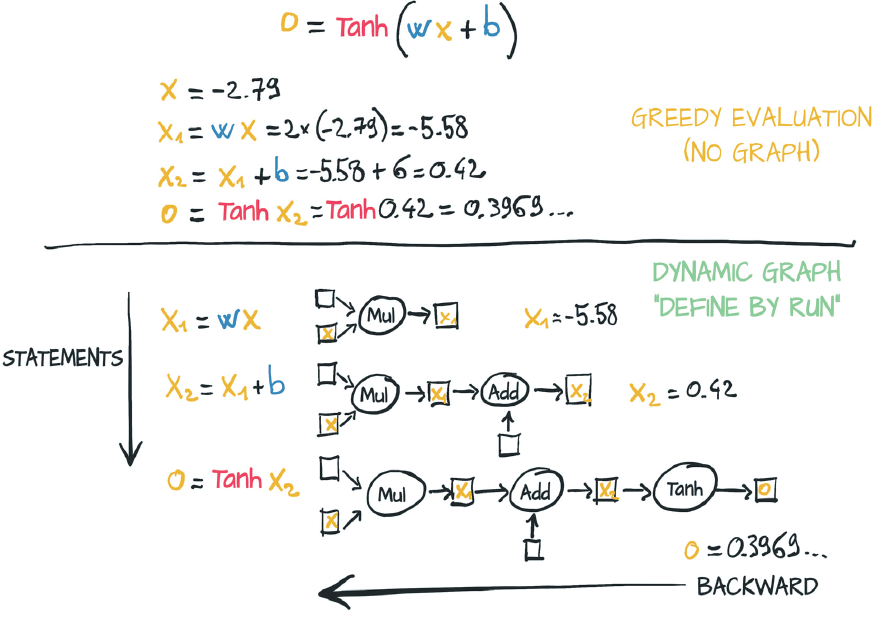 O = Tanh(wx + b)
X = -2.79
X₁ = wX = 2×(-2.79) = -5.58
X₂ = X₁ + b = -5.58 + 6 = 0.42
O = Tanh X₂ = Tanh 0.42 = 0.3969...
GREEDY EVALUATION
(NO GRAPH)
DYNAMIC GRAPH
"DEFINE BY RUN"
STATEMENTS
X₁ = wX
X Mul X₁
X₁ = -5.58
X₂ = X₁ + b
X Mul X₁ Add X₂
X₂ = 0.42
O = Tanh X₂
X Mul X₁ Add X₂ Tanh O
O = 0.3969...
BACKWARD